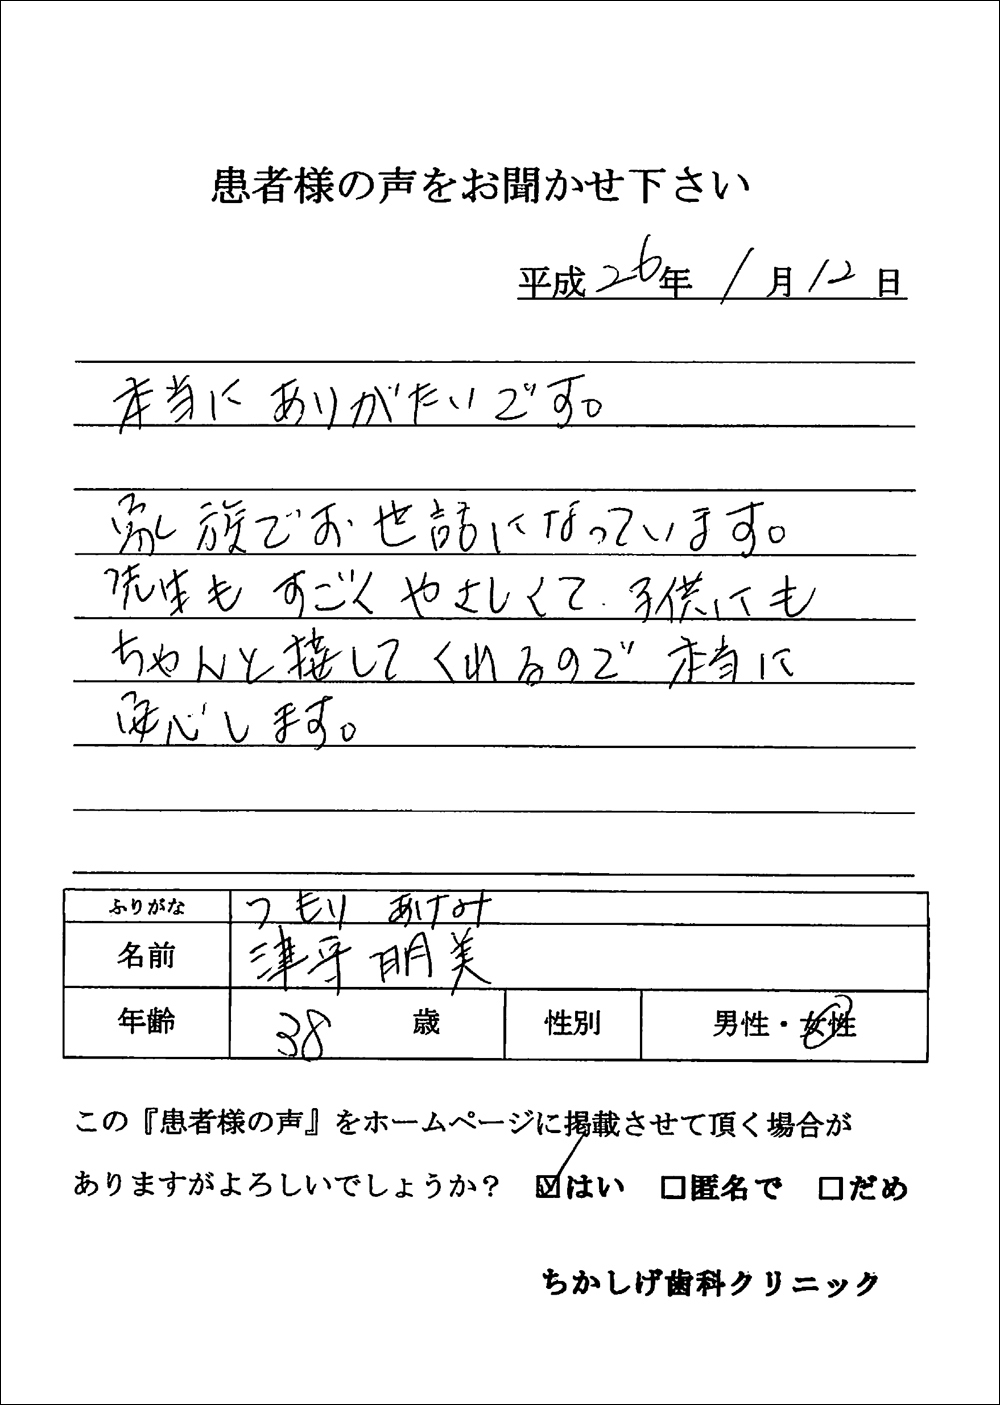 患者様の声をお聞かせ下さい
平成26年 1月12日
本当にありがたいです。
家族でお世話になっています。
先生もすごくやさしくて、子供にも
ちゃんと接してくれるので本当に
安心します。
ふりがな つもり あけみ
名前 津守 明美
年齢 38 歳 性別 男性・女性
この『患者様の声』をホームページに掲載させて頂く場合が
ありますがよろしいでしょうか? ☑はい □匿名で □だめ
ちかしげ歯科クリニック